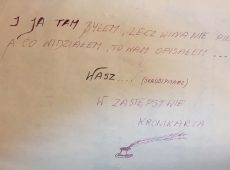 I JA TAM BYŁEM, LECZ WINA NIE PIŁ
A CO WIDZIAŁEM, TO WAM OPISAŁEM...
WASZ.... (SKARBNIKARZ)
W ZASTĘPSTWIE
KRONIKARZA